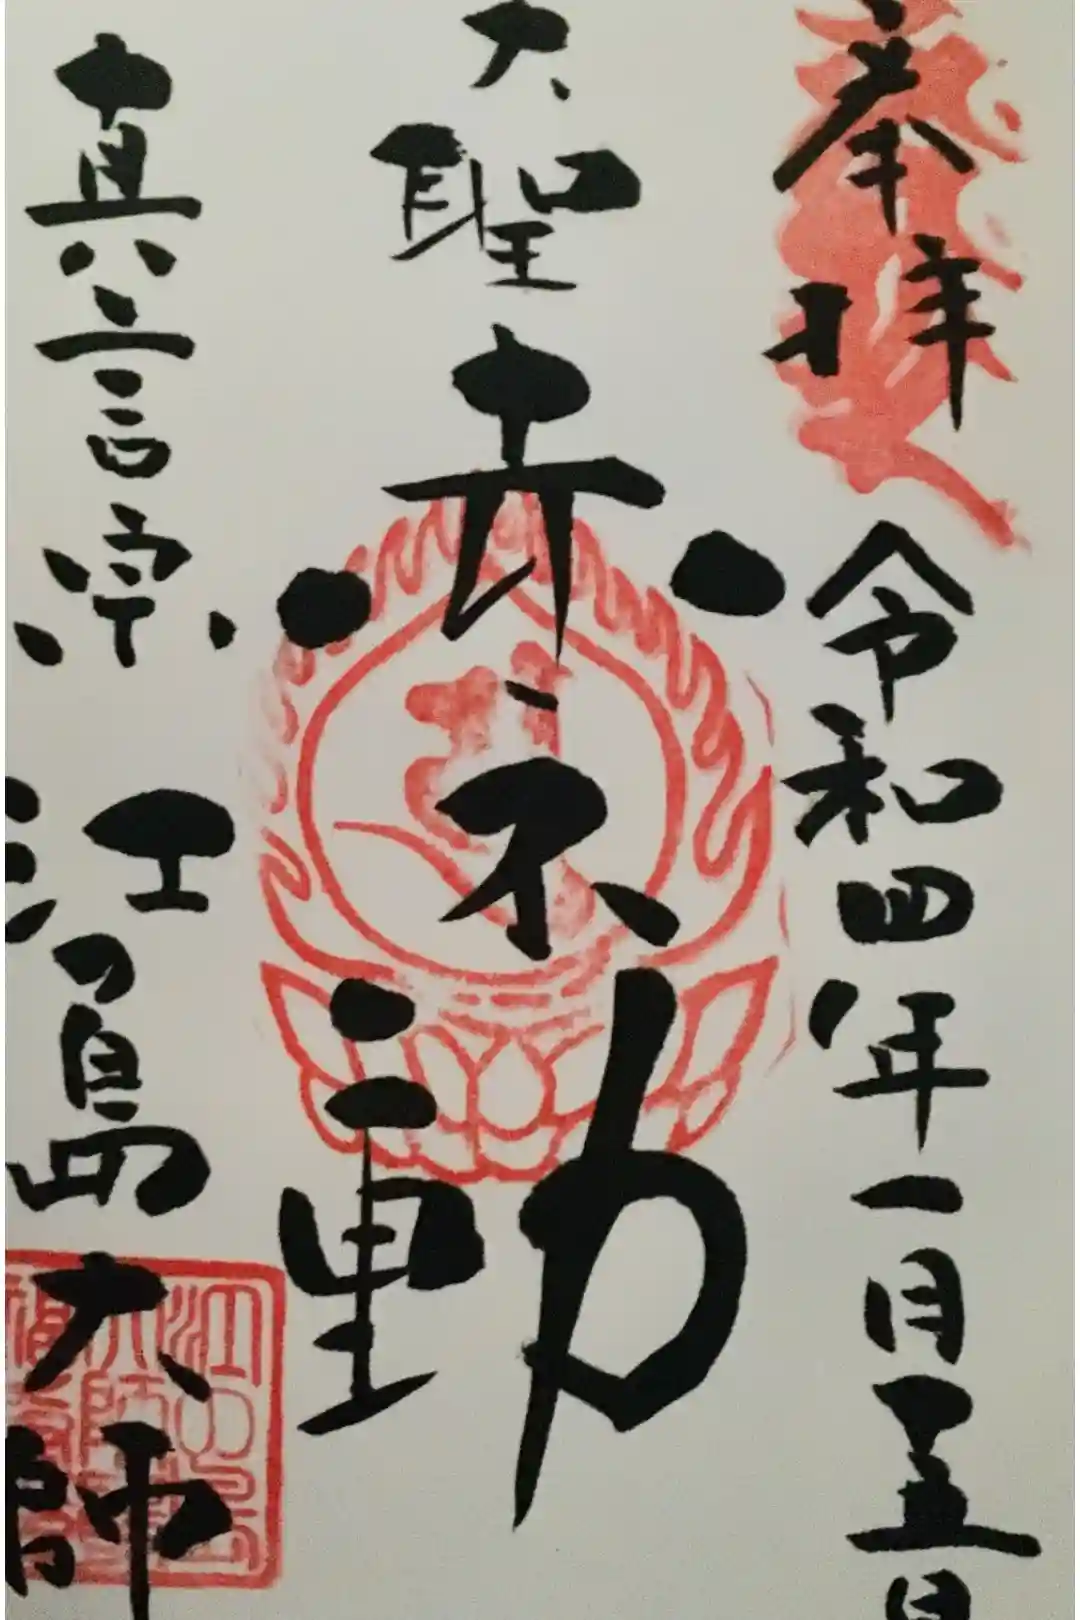 奉拝 令和四年一月五日
大聖赤不動
真言宗 江島大師